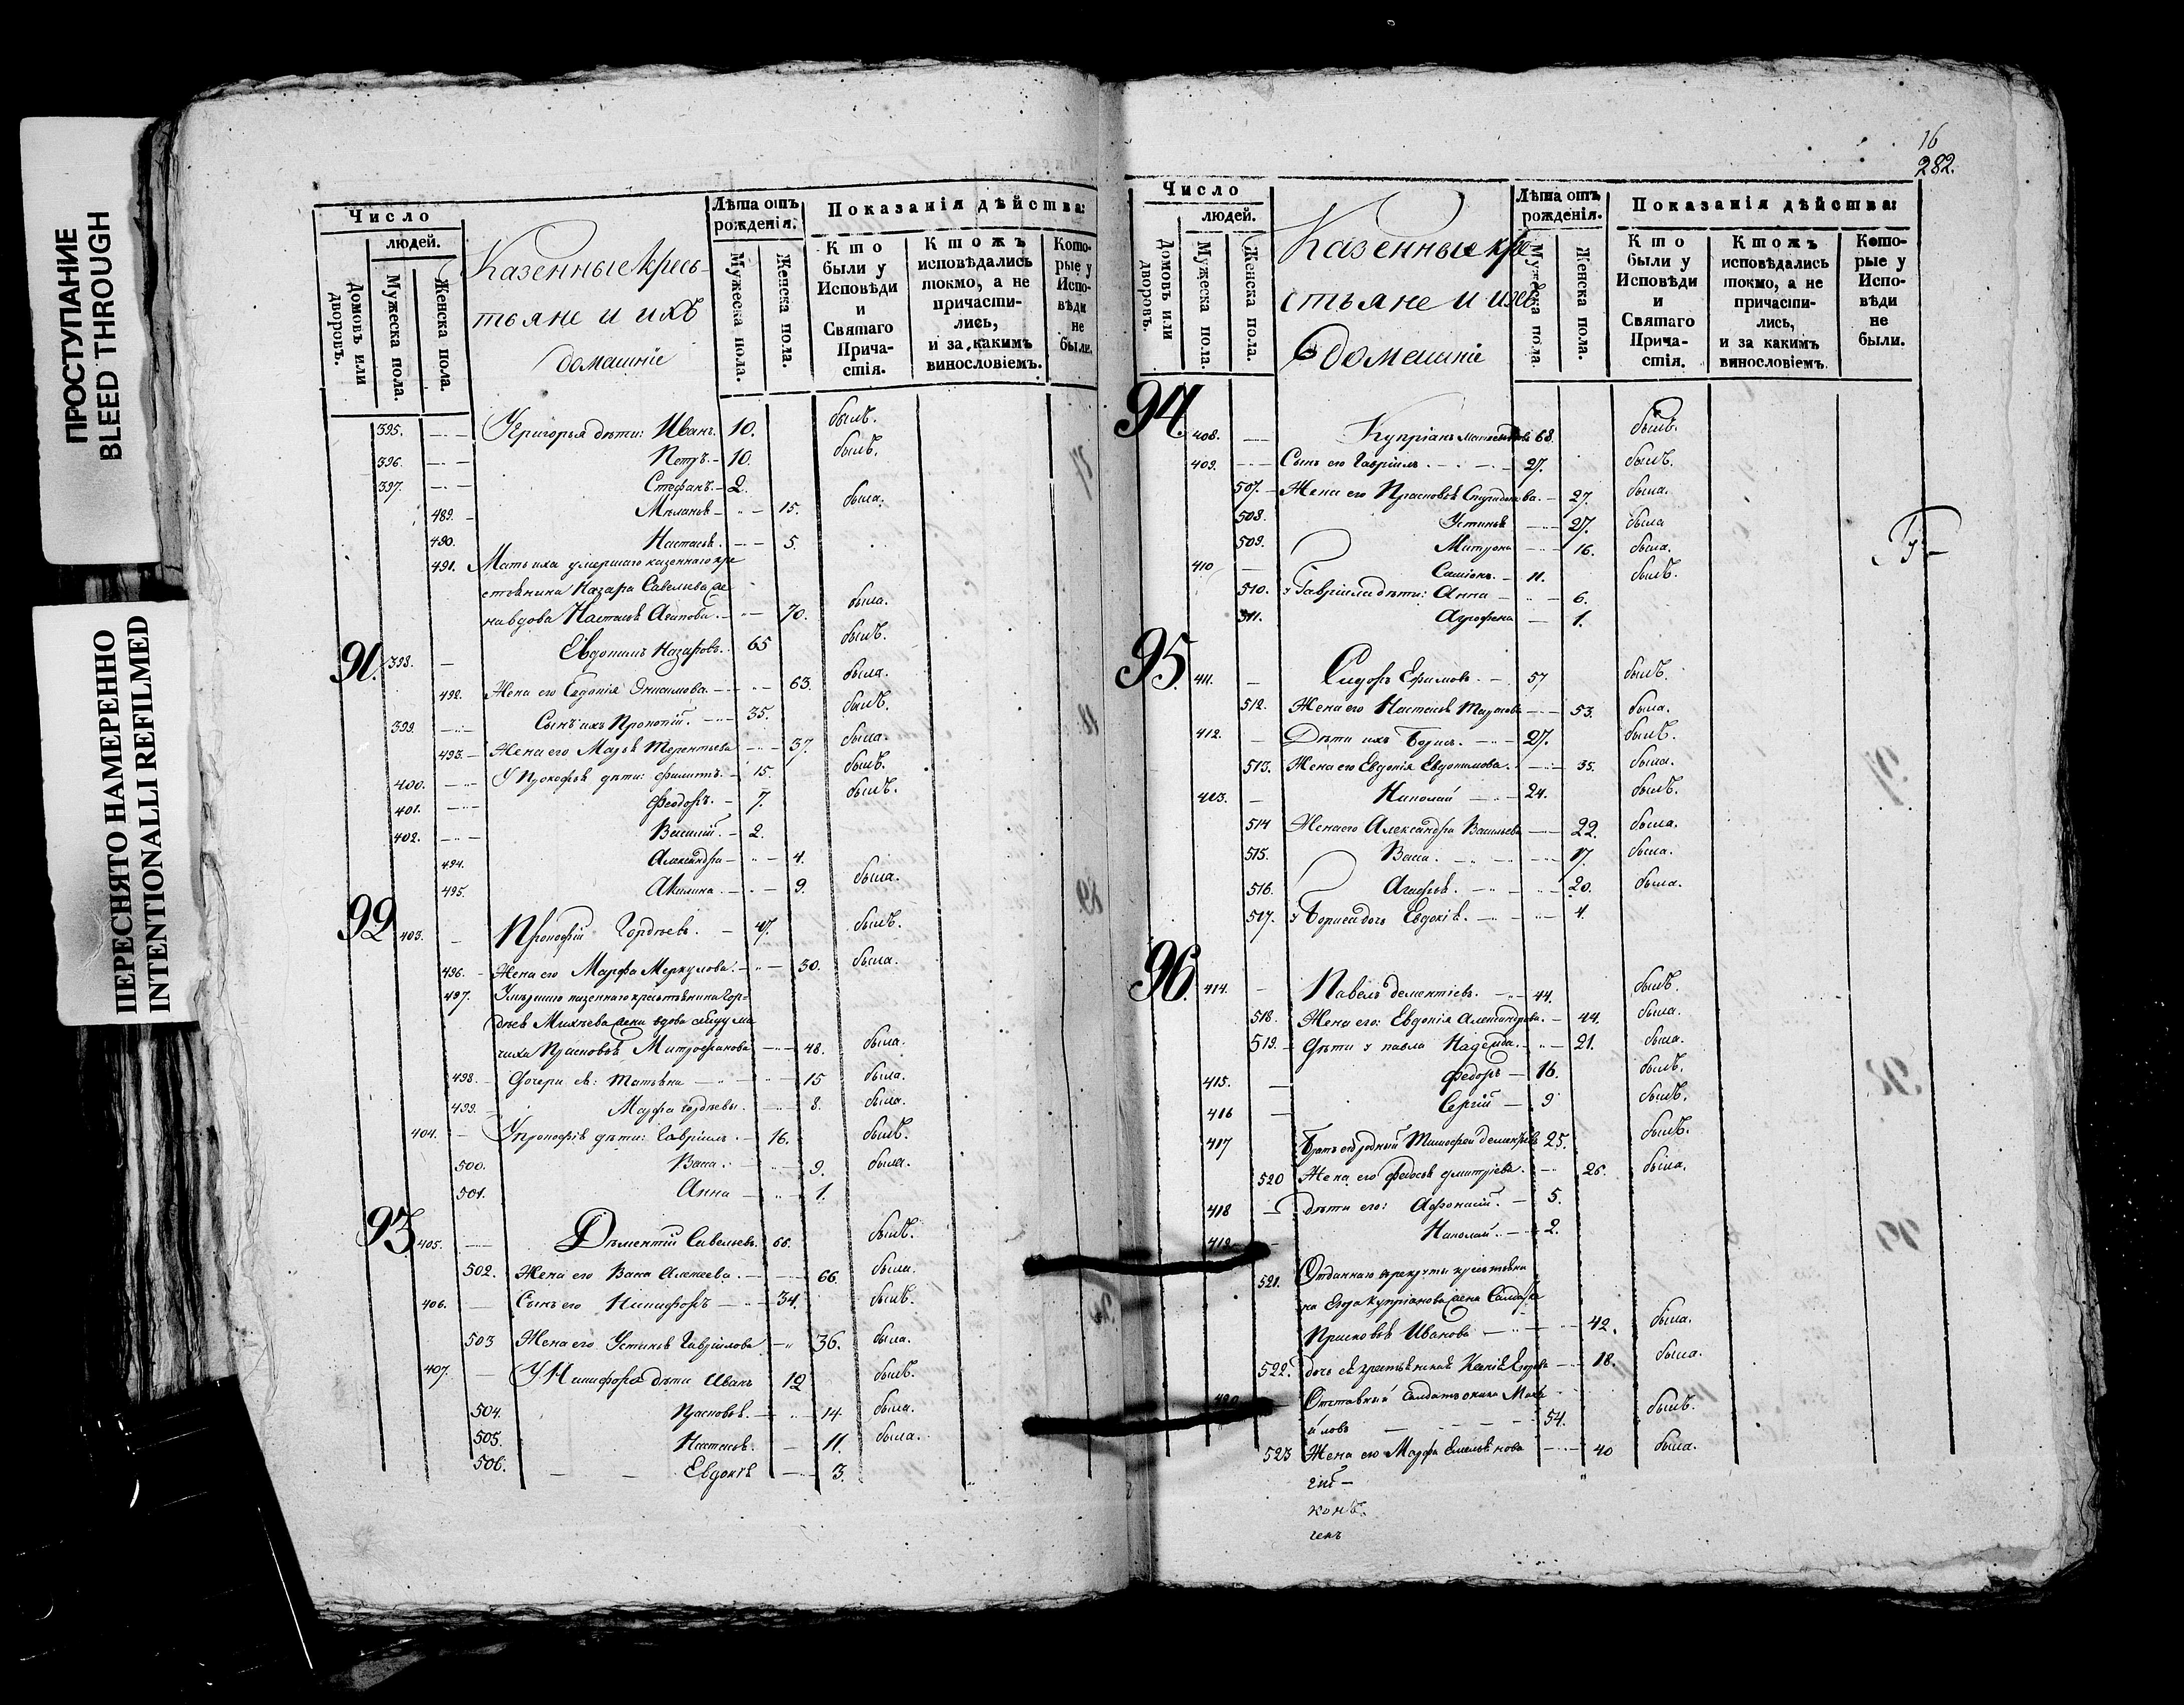 ПРОСТУПАНИЕ
BLEED THROUGH
ПЕРЕСНЯТО НАМЕРЕННО
INTENTIONALLI REFILMED
Число
людей.
Домовъ или дворовъ.
Мужеска пола.
Женска пола.
Казенные кресь-
тьяне и ихъ
домашніе
Лѣта отъ рожденія.
Мужеска пола.
Женска пола.
Показанія дѣйства:
Кто были у Исповѣди и Святаго Прича-стія.
Ктожъ исповѣдались токмо, а не причасти-лись, и за какимъ винословіемъ.
Кото-рые у Испо-вѣди не были.
395. У Григорья дѣти: Иванъ. 10. былъ.
396. Петръ. 10. былъ.
397. Стефанъ. 2.
489. 15. была.
490. Настасья. 5.
491. Мать ихъ умершаго казеннаго кре
стьянина Назара Савельева же
на вдова Настасья 70. была.
91. 398. Евдокимъ Назаровъ. 65 былъ.
492. Жена его Евдокія Анисимова. 63. была.
399. Сынъ ихъ Прокопій. 35. былъ.
493. Жена его Марья Терентьева 37. была.
400. У дѣти: Филиппъ. 15. былъ.
401. Феодоръ. 7. былъ.
402. Василій. 2.
494. Александра 4.
495. Акилина. 9. была.
92 403. Прокофій Гордѣевъ. 47. былъ.
496. Жена его Марфа Меркулова. 50. была.
497. Умершаго казеннаго крестьянина Гор-
дѣя Михѣева жена вдова
чиха Прасковья Митрофанова 48. была.
498. Дочери ея: Татьяна 15 была.
499. Марфа Гордѣевы. 8. была.
404. У Прокофія дѣти: Гавріилъ. 16. былъ.
500. Васа. 9. была.
501. Анна 1.
93 405. Дементій Савельевъ. 66. былъ.
502. Жена его Васа Алексеева. 66. была.
406. Сынъ его Никифоръ 34. былъ.
503 Жена его Устинья Гаврилова 36. была.
407. У Никифора дѣти Иванъ 12 былъ.
504. Прасковья. 14. была.
505. Настасья. 11. была.
506. Евдокія 3.
16
282.
Число
людей.
Домовъ или дворовъ.
Мужеска пола.
Женска пола.
Казенные кре
стьяне и ихъ
домашніе
Лѣта отъ рожденія.
Мужеска пола.
Женска пола.
Показанія дѣйства:
Кто были у Исповѣди и Святаго Прича-стія.
Ктожъ исповѣдались токмо, а не причасти-лись, и за какимъ винословіемъ.
Кото-рые у Испо-вѣди не были.
94. 408. Купріанъ 68. былъ.
409. Сынъ его Гавріилъ. 27. былъ.
507. Жена его Прасковья 27. была.
508. Устинья 27. была
509. Матрона 16. была.
410 11. былъ.
510. у Гавріила дѣти: Анна 6.
511. Агрофена 1.
95. 411. Сидоръ Ефимовъ. 57 былъ.
512. Жена его Настасья Тарасова 53. была.
412. Дѣти ихъ Борисъ. 27. былъ.
513. Жена его Евдокія Евдокимова. 35. была.
413. Николай 24. былъ.
514 Жена его Александра Васильева 22. была.
515. Васа. 17. была.
516. Агафья. 20. была.
517. у Бориса дочь Евдокія. 4.
96. 414. Павелъ Дементіевъ. 44. былъ.
518. Жена его: Евдокія Александрова. 44. была.
519. Дѣти у Павла Надежда. 21. была.
415. Федоръ 16. былъ.
416 Сергій 9 былъ.
417 Братъ Тимофей Дементьевъ 25. былъ.
520 Жена его Федосья Дмитріева. 26. была.
418 Дѣти его: Афонасій. 5.
419 Николай. 2.
521. Отданнаго в рекруты крестьяни
на Егора Купріанова жена Салдатка
Прасковья Иванова 42. была.
522. дочь ея 18. была.
420 Отставный Салдатъ
54. былъ.
523 Жена его Марфа Емельянова 40 была.